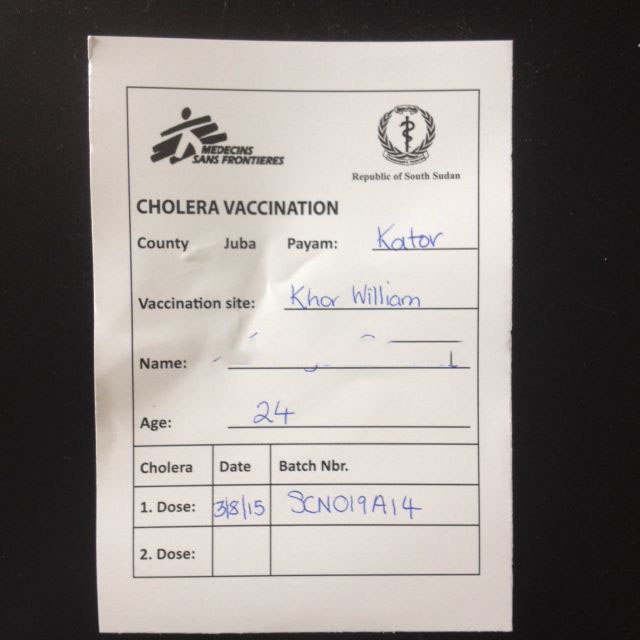 MEDECINS
SANS FRONTIERES
Republic of South Sudan
CHOLERA VACCINATION
County Juba Payam: Kator
Vaccination site: Khor William
Name:
Age: 24
Cholera Date Batch Nbr.
1. Dose: 3/8/15 SCN019A14
2. Dose: